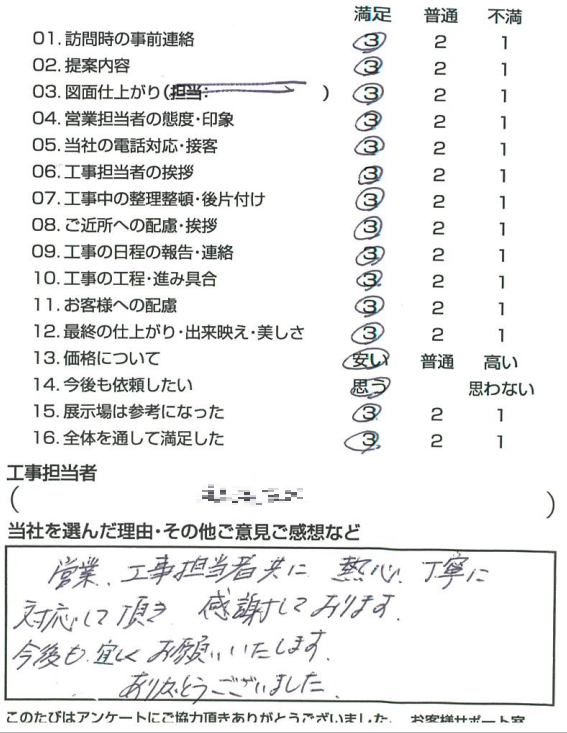 満足 普通 不満
01. 訪問時の事前連絡 3 2 1
02. 提案内容 3 2 1
03. 図面仕上がり(担当: ) 3 2 1
04. 営業担当者の態度・印象 3 2 1
05. 当社の電話対応・接客 3 2 1
06. 工事担当者の挨拶 3 2 1
07. 工事中の整理整頓・後片付け 3 2 1
08. ご近所への配慮・挨拶 3 2 1
09. 工事の日程の報告・連絡 3 2 1
10. 工事の工程・進み具合 3 2 1
11. お客様への配慮 3 2 1
12. 最終の仕上がり・出来映え・美しさ 3 2 1
13. 価格について 安い 普通 高い
14. 今後も依頼したい 思う 思わない
15. 展示場は参考になった 3 2 1
16. 全体を通して満足した 3 2 1
工事担当者
( )
当社を選んだ理由・その他ご意見ご感想など
営業、工事担当者共に 熱心、丁寧に
対応して頂き 感謝しております。
今後も宜しくお願いいたします。
ありがとうございました。
このたびはアンケートにご協力頂きありがとうございました。 お客様サポート室